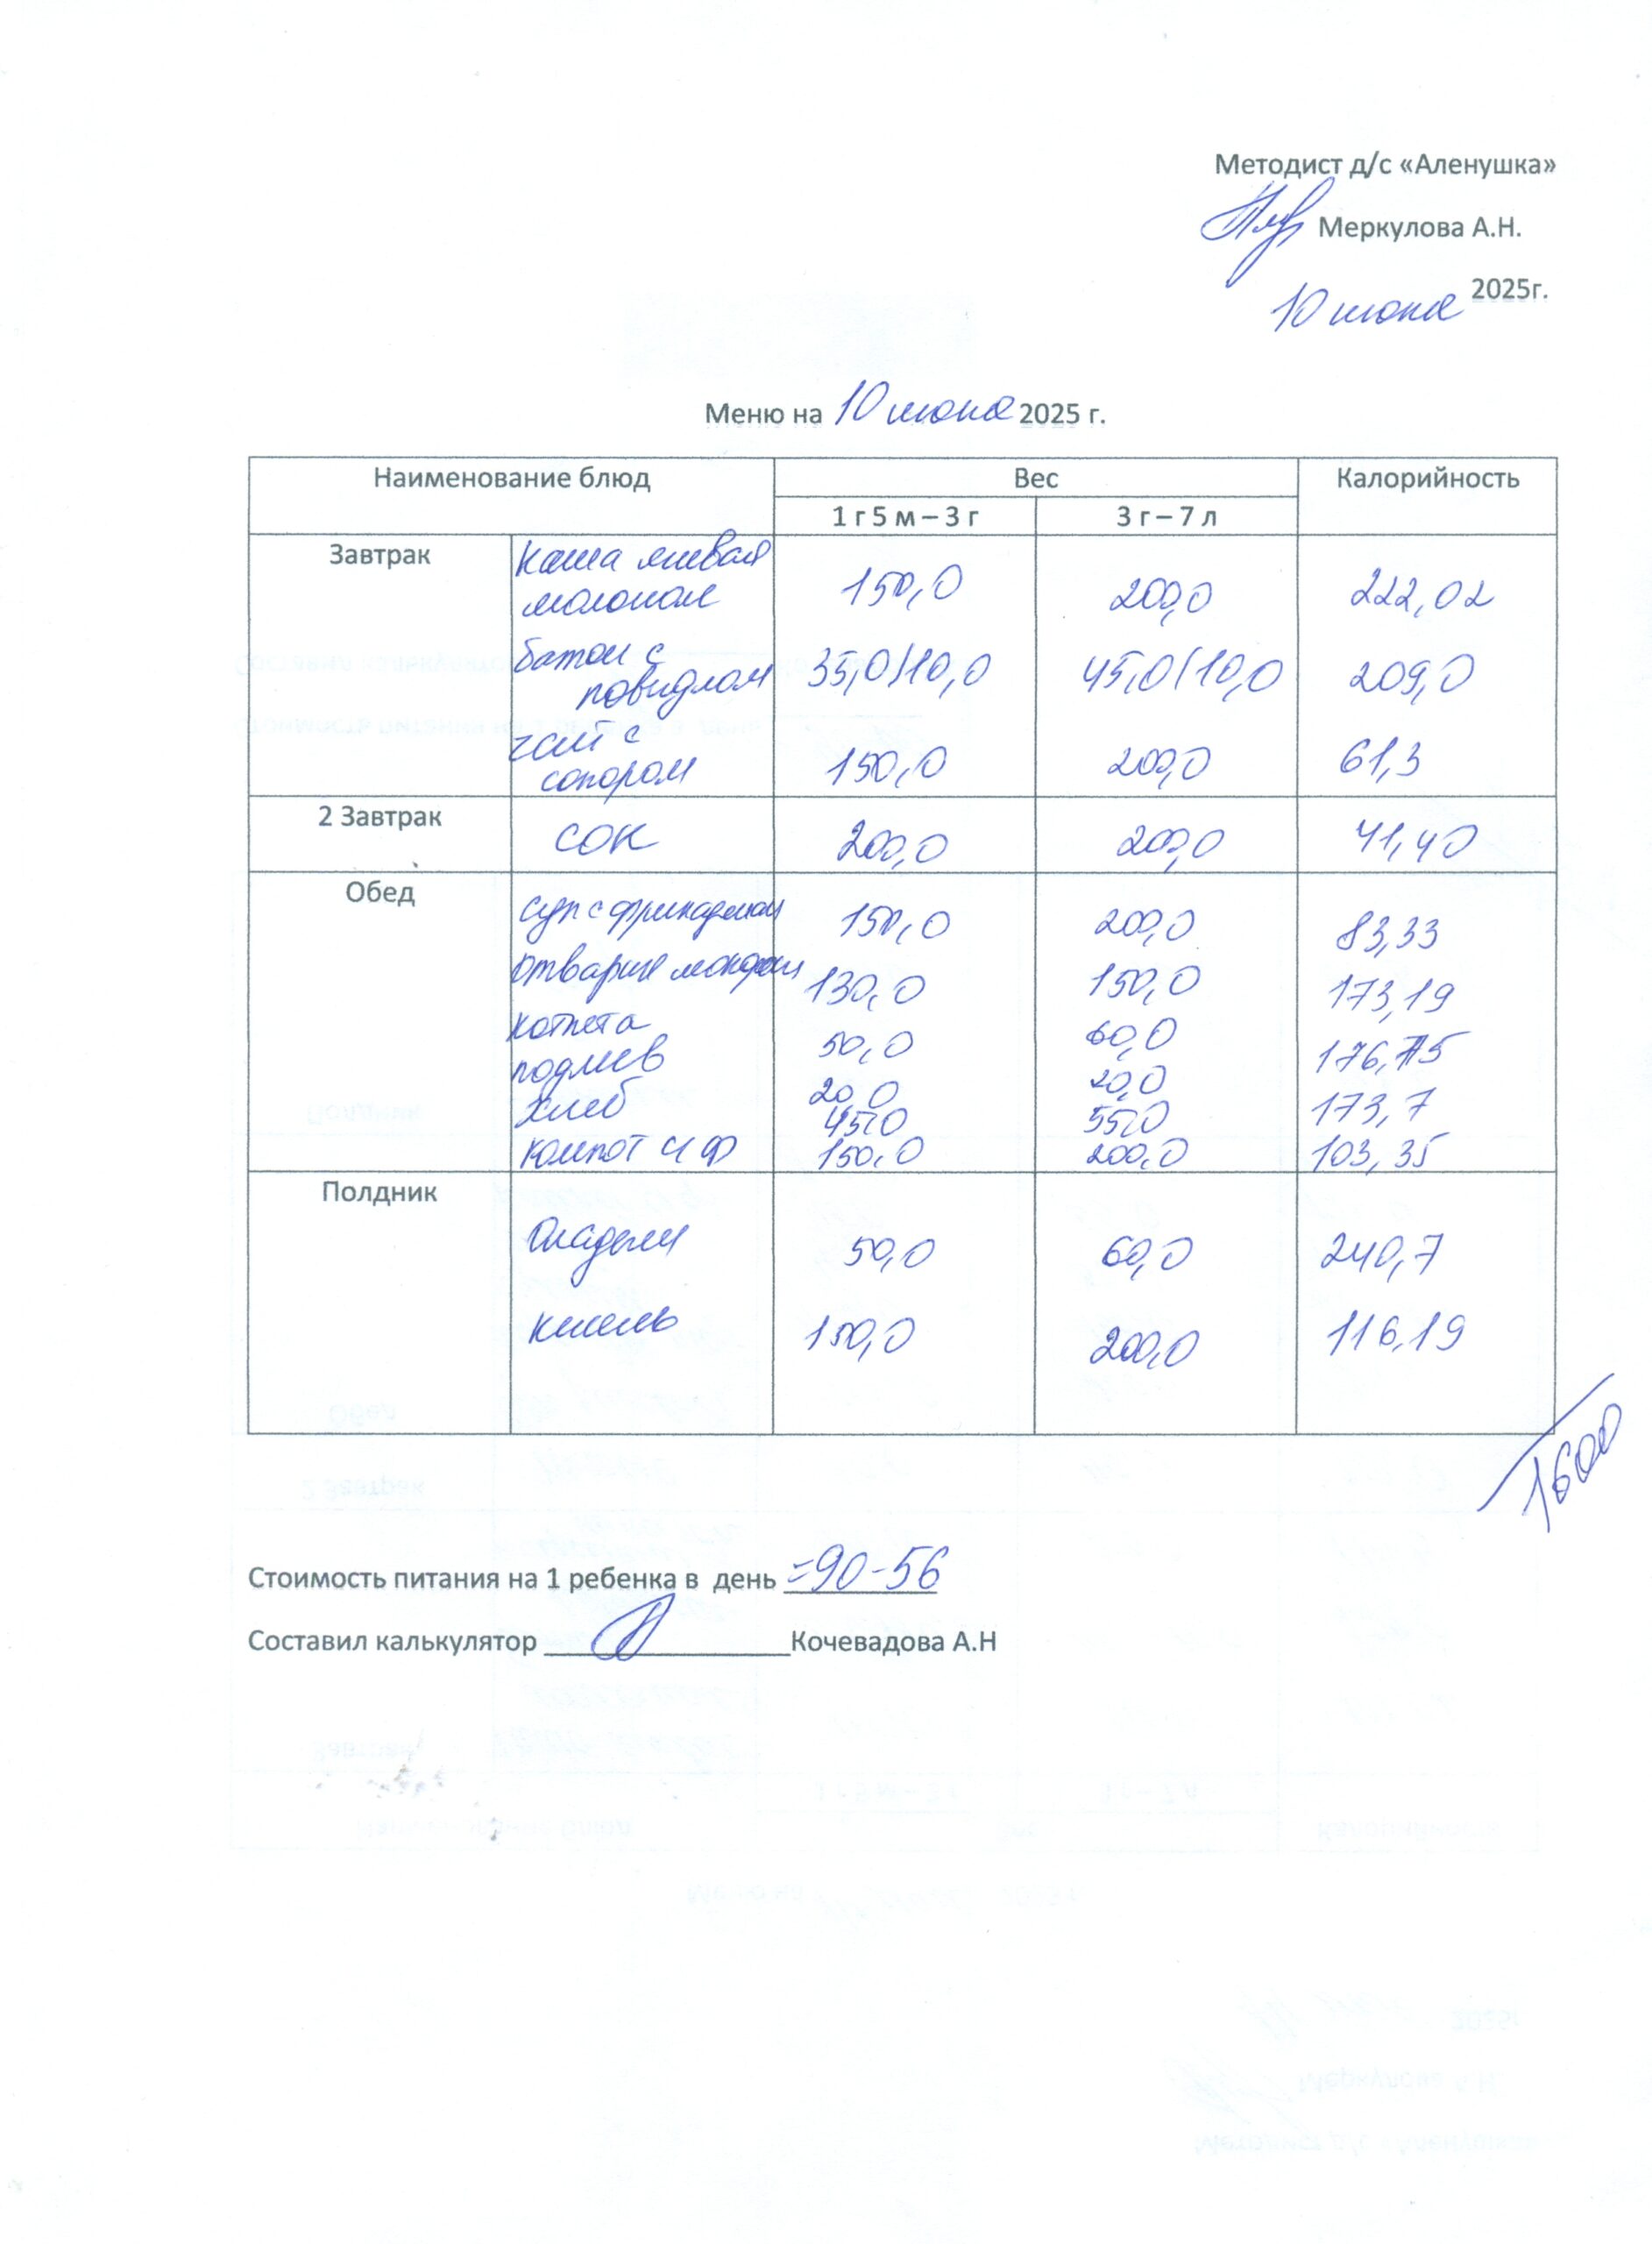 Методист д/с «Аленушка»
Меркулова А.Н.
10 июня 2025г.
Меню на 10 июня 2025 г.
Наименование блюд Вес Калорийность
1 г 5 м – 3 г 3 г – 7 л
Завтрак каша ячневая
молочная 150,0 200,0 222,02
батон с
повидлом 35,0/10,0 45,0/10,0 209,0
чай с
сахаром 150,0 200,0 61,3
2 Завтрак сок 200,0 200,0 41,40
Обед суп с фрикадельками 150,0 200,0 83,33
отварные макароны 130,0 150,0 173,19
котлета 50,0 60,0 176,75
подлив 20,0 20,0
хлеб 45,0 55,0 173,7
компот с/ф 150,0 200,0 103,35
Полдник
Оладьи 50,0 60,0 240,7
кисель 150,0 200,0 116,19
1600
Стоимость питания на 1 ребенка в день =90-56
Составил калькулятор Кочевадова А.Н